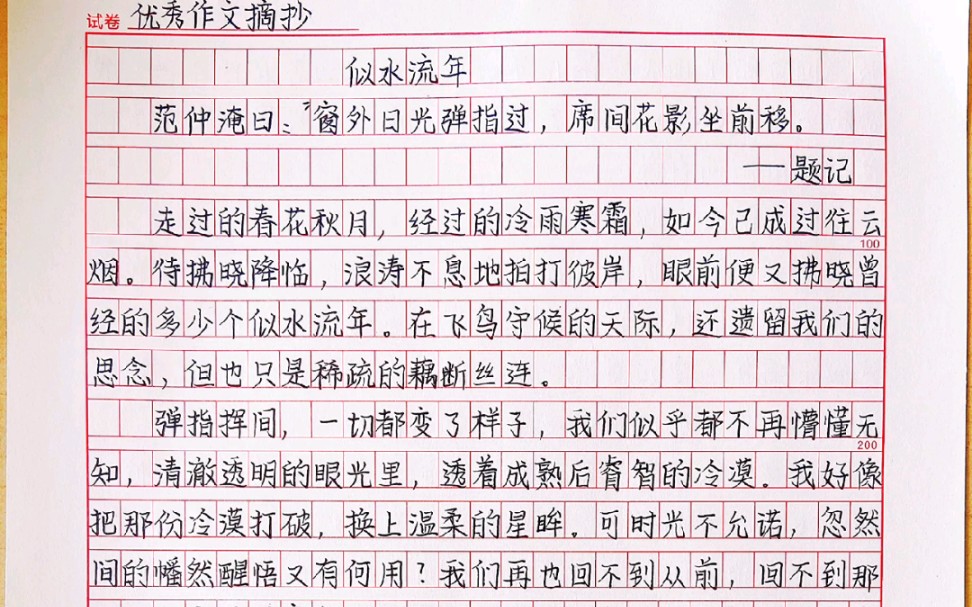 试卷 优秀作文摘抄
似水流年
范仲淹曰：“窗外日光弹指过，席间花影坐前移。
——题记
走过的春花秋月，经过的冷雨寒霜，如今已成过往云
100
烟。待拂晓降临，浪涛不息地拍打彼岸，眼前便又拂晓曾
经的多少个似水流年。在飞鸟守候的天际，还遗留我们的
思念，但也只是稀疏的藕断丝连。
弹指挥间，一切都变了样子，我们似乎都不再懵懂无
200
知，清澈透明的眼光里，透着成熟后睿智的冷漠。我好像
把那份冷漠打破，换上温柔的星眸。可时光不允诺，忽然
间的幡然醒悟又有何用？我们再也回不到从前，回不到那